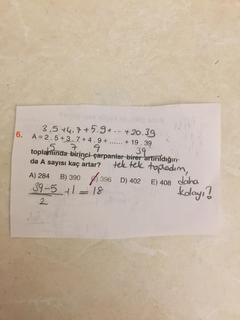 3.5+4.7+5.9+...+20.39
6.
A = 2 . 5 + 3 . 7 + 4 . 9 + ...... + 19 . 39
5 7 9 39
toplamında birinci çarpanlar birer artırıldığın-
da A sayısı kaç artar?
tek tek topladım,
A) 284 B) 390 C) 396 D) 402 E) 408
daha
kolayı?
39-5
2
+1 = 18